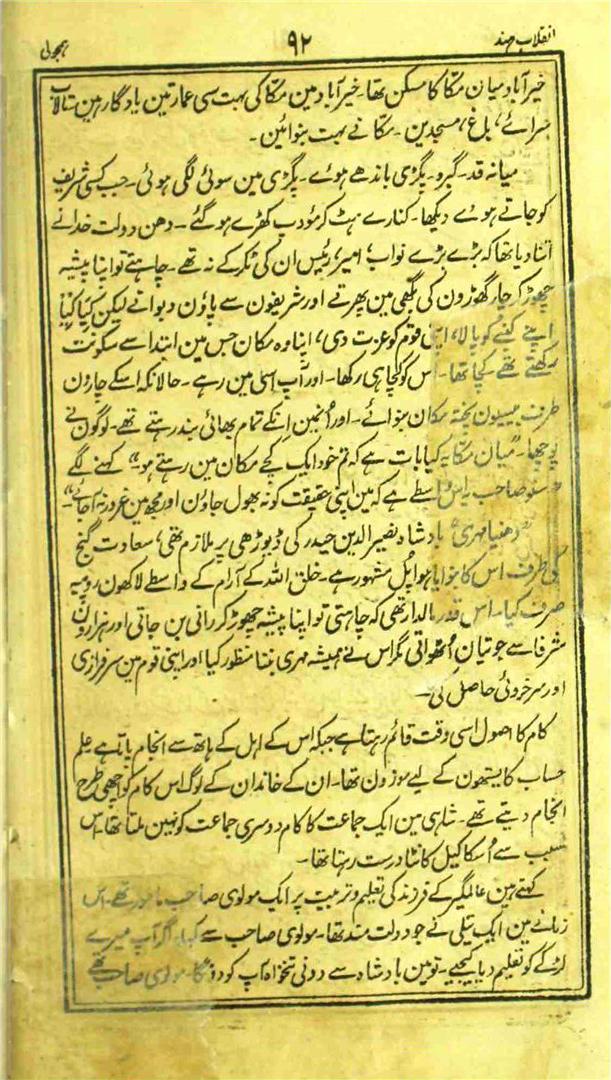 انقلاب ہند ۹۲ ہجولی
خیرآباد میان مکّا کا مسکن تھا۔ خیرآباد مین مکّا کی بہت سی عمارتین یادگار ہین تالاب
سرائے، باغ، مسجدین۔ مکّا نے بہت بنوائین۔
میانہ قد۔ گبرو۔ پگڑی باندھے ہوے۔ پگڑی مین سوئی لگی ہوئی۔ جب کسی شریف
کو جاتے ہوے دیکھا۔ کنارے ہٹ کر مؤدب کھڑے ہو گئے۔ دھن دولت خدا نے
اتنا دیا تھا کہ بڑے بڑے نواب، امیر، رئیس ان کی ٹکر کے نہ تھے۔ چاہتے تو اپنا پیشہ
چھوڑ کر چار گھوڑون کی بگھی مین پھرتے اور شریفون سے پاؤن دبواتے لیکن کیا کیا
اپنے کنبے کو پالا، اپنی قوم کو عزت دی، اپنا وہ مکان جس مین ابتدا سے سکونت
رکھتے تھے۔ کچا تھا۔ اس کو کچا ہی رکھا۔ اور آپ اسی مین رہے۔ حالانکہ اسکے چارون
طرف بیسیون پختہ مکان بنوائے۔ اور اُنھین اِنکے تمام بھائی بند رہتے تھے۔ لوگون نے
پوچھا۔ "میان مکّا یہ کیا بات ہے کہ تم خود ایک کچے مکان مین رہتے ہو" کہنے لگے
سنو صاحب یہ اس واسطے ہے کہ مین اپنی حقیقت کو نہ بھول جاؤن اور مجھ مین غرور نہ آجائے"۔
دھنیا مہری، بادشاہ نصیر الدین حیدر کی ڈیوڑھی پر ملازم تھی، سعادت گنج
کی طرف اس کا بنوایا ہوا پُل مشہور ہے۔ خلق اللہ کے آرام کے واسطے لاکھون روپیہ
صرف کیا۔ اس قدر مالدار تھی کہ چاہتی تو اپنا پیشہ چھوڑ کر رانی بن جاتی اور ہزارون
شرفا سے جوتیان اُٹھواتی مگر اس نے ہمیشہ مہری بننا منظور کیا اور اپنی قوم مین سرفرازی
اور سرخروئی حاصل کی۔
کام کا اصول اسی وقت قائم رہتا ہے جبکہ اس کے اہل کے ہاتھ سے انجام پاتا ہے علم
حساب کایستھون کے لیے موزون تھا۔ ان کے خاندان کے لوگ اس کام کو اچھی طرح
انجام دیتے تھے۔ شاہی مین ایک جماعت کا کام دوسری جماعت کو نہین ملتا تھا۔ اس
سبب سے اُسکا کیل کانٹا درست رہتا تھا۔
کہتے ہین عالمگیر کے فرزند کی تعلیم و تربیت پر ایک مولوی صاحب مامور تھے۔ اس
زمانے مین ایک تیلی نے جو دولت مند تھا۔ مولوی صاحب سے کہا۔ اگر آپ میرے
لڑکے کو تعلیم دیا کیجیے۔ تو مین بادشاہ سے دونی تنخواہ آپ کو دونگا۔ مولوی صاحب تھے